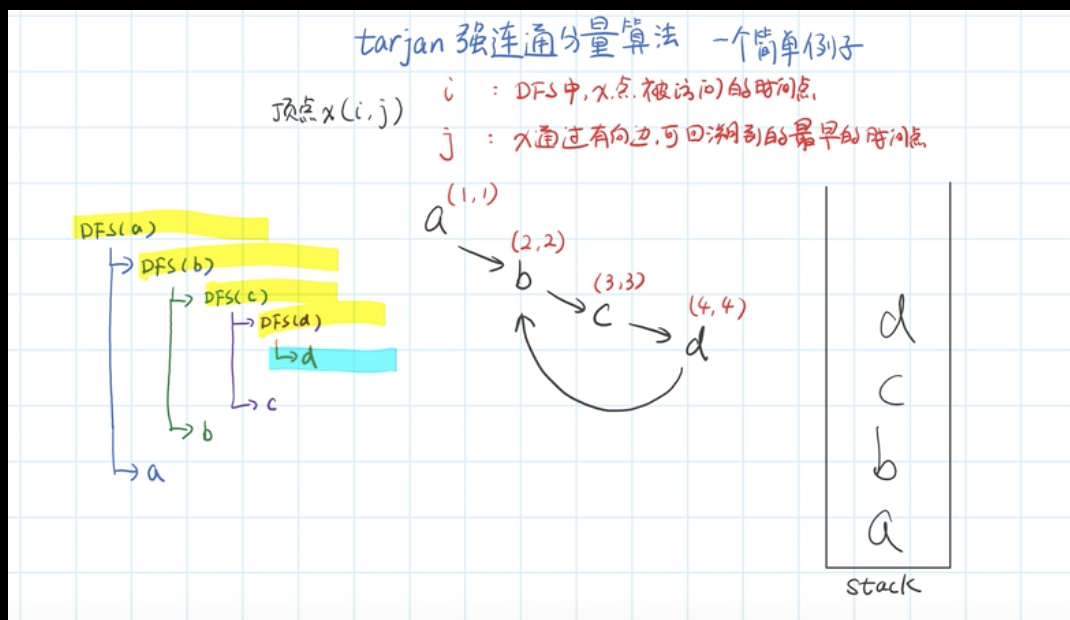 tarjan 强连通分量算法 一个简单例子
顶点x(i,j)
i : DFS中,x点.被访问的时间点
j : x通过有向边,可回溯到的最早的时间点
DFS(a)
DFS(b)
DFS(c)
DFS(d)
d
c
b
a
a (1,1)
b (2,2)
c (3,3)
d (4,4)
d
c
b
a
stack